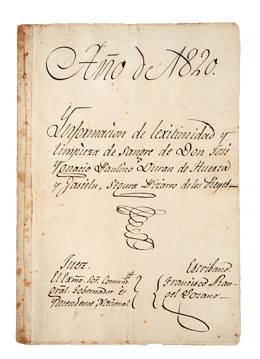 Año de 1820.
Ynformacion de lexitimidad y
limpieza de sangre de Don José
Ygnacio Paulino Duran de Huerta
y Garcilu, Segura Pizarro de los Reyes
Juez.
El Exmo. Sor. Comandte.
Gral. Gobernador é
Yntendente Nacional
Escribano
Francisco Ran-
gel Lozano